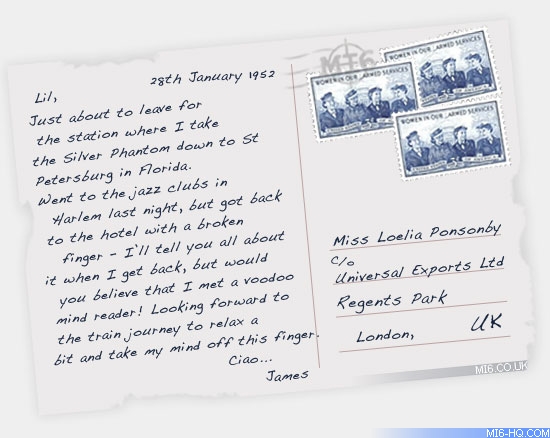 28th January 1952
Lil,
Just about to leave for
the station where I take
the Silver Phantom down to St
Petersburg in Florida.
Went to the jazz clubs in
Harlem last night, but got back
to the hotel with a broken
finger - I'll tell you all about
it when I get back, but would
you believe that I met a voodoo
mind reader! Looking forward to
the train journey to relax a
bit and take my mind off this finger.
Ciao...
James
MI6
WOMEN IN OUR ARMED SERVICES
WOMEN IN OUR ARMED SERVICES
WOMEN IN OUR ARMED SERVICES
Miss Loelia Ponsonby
c/o
Universal Exports Ltd
Regents Park
London, UK
MI6.CO.UK
MI6-HQ.COM